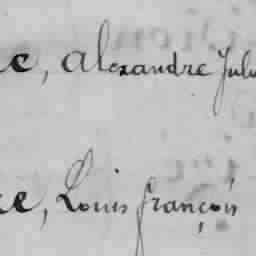 c, Alexandre Jul
e, Louis françois